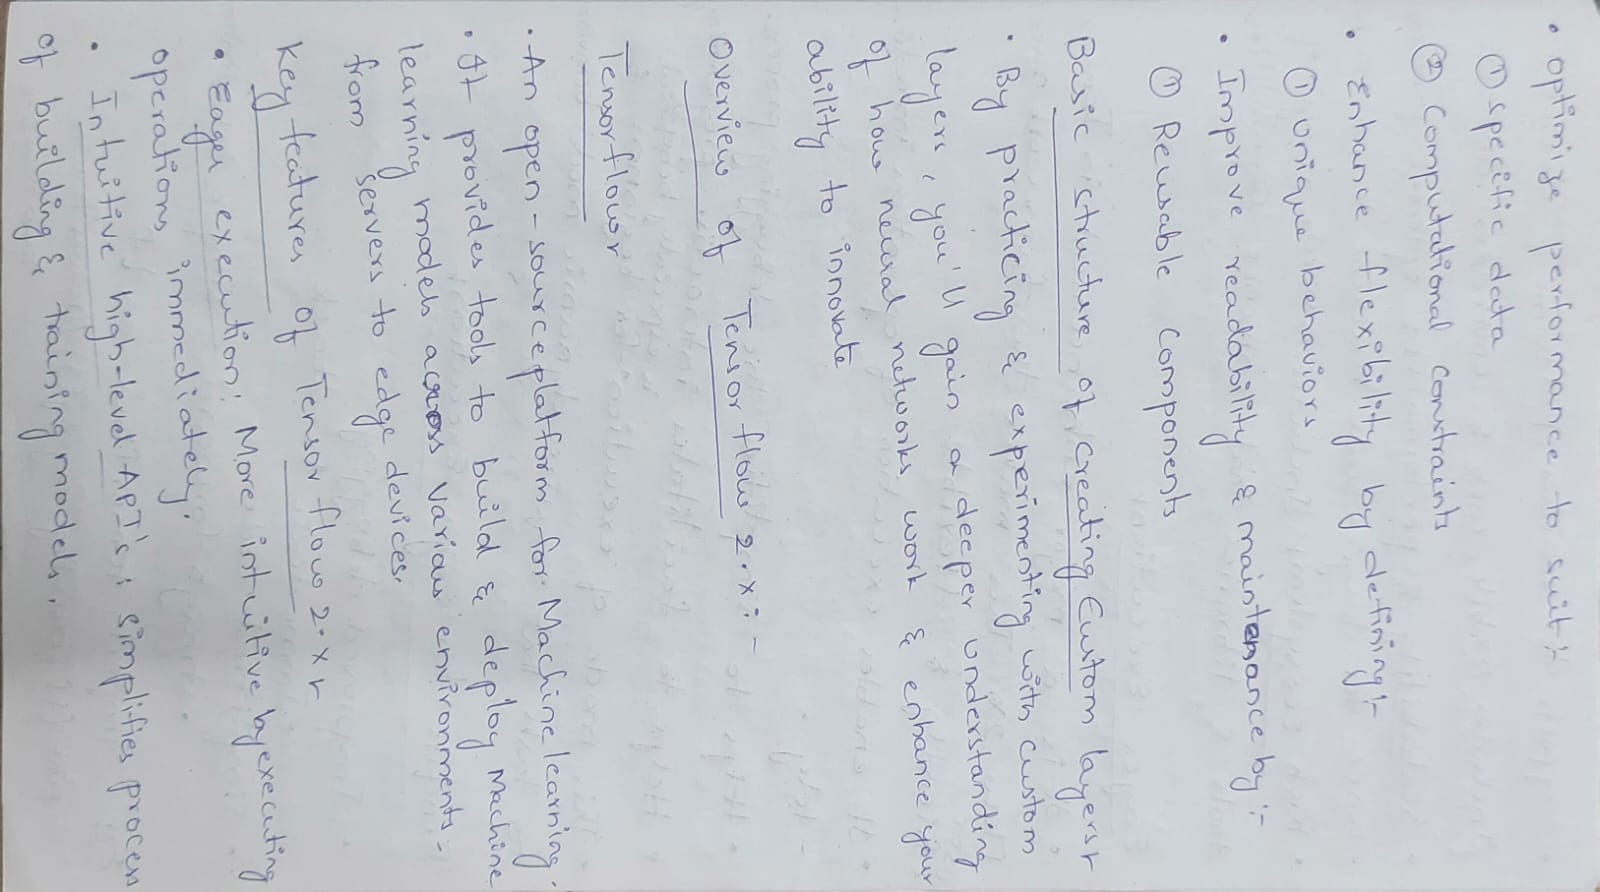 • optimize performance to suit :-
① specific data
② Computational constraints
• Enhance flexibility by defining :-
① unique behaviors
• Improve readability & maintenance by :-
① Reusable components
Basic structure of creating Custom layers :-
• By practicing & experimenting with custom
layers, you'll gain a deeper understanding
of how neural networks work & enhance your
ability to innovate
Overview of Tensor flow 2.x : -
Tensorflow :-
• An open-source platform for Machine learning.
• It provides tools to build & deploy Machine
learning models across various environments-
from servers to edge devices.
Key features of Tensor flow 2.x :-
• Eager execution: More intuitive by executing
operations immediately.
• Intuitive high-level API's : simplifies process
of building & training models.